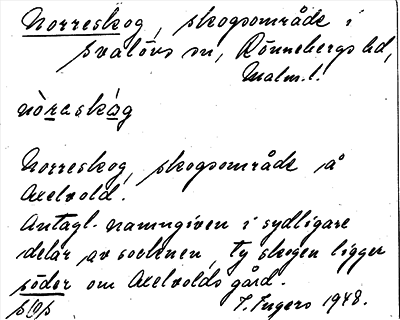 Norreskog, skogsområde i
Svalövs sn, Rönnebergs hd,
Malm. l.
nòraskåg
Norreskog, skogsområde å
Axelvold.
Antagl. namngiven i sydligare
delar av socknen, ty skogen ligger
söder om Axelvolds gård.
I. Ingers 1948.